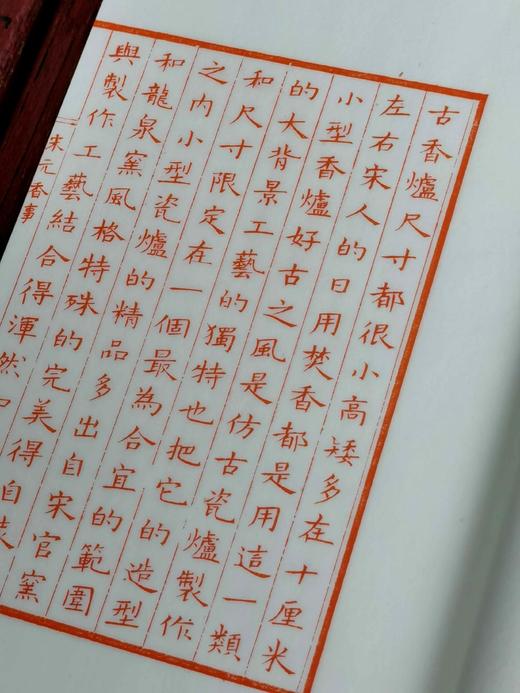 古香爐尺寸都很小高矮多在十厘米
左右宋人的日用焚香都是用這一類
小型香爐好古之風是仿古瓷爐製作
的大背景工藝的獨特也把它的造型
和尺寸限定在一個最為合宜的範圍
之内小型瓷爐的精品多出自宋官窯
和龍泉窯風格特殊的完美得自
與製作工藝結合得渾然
宋元香事